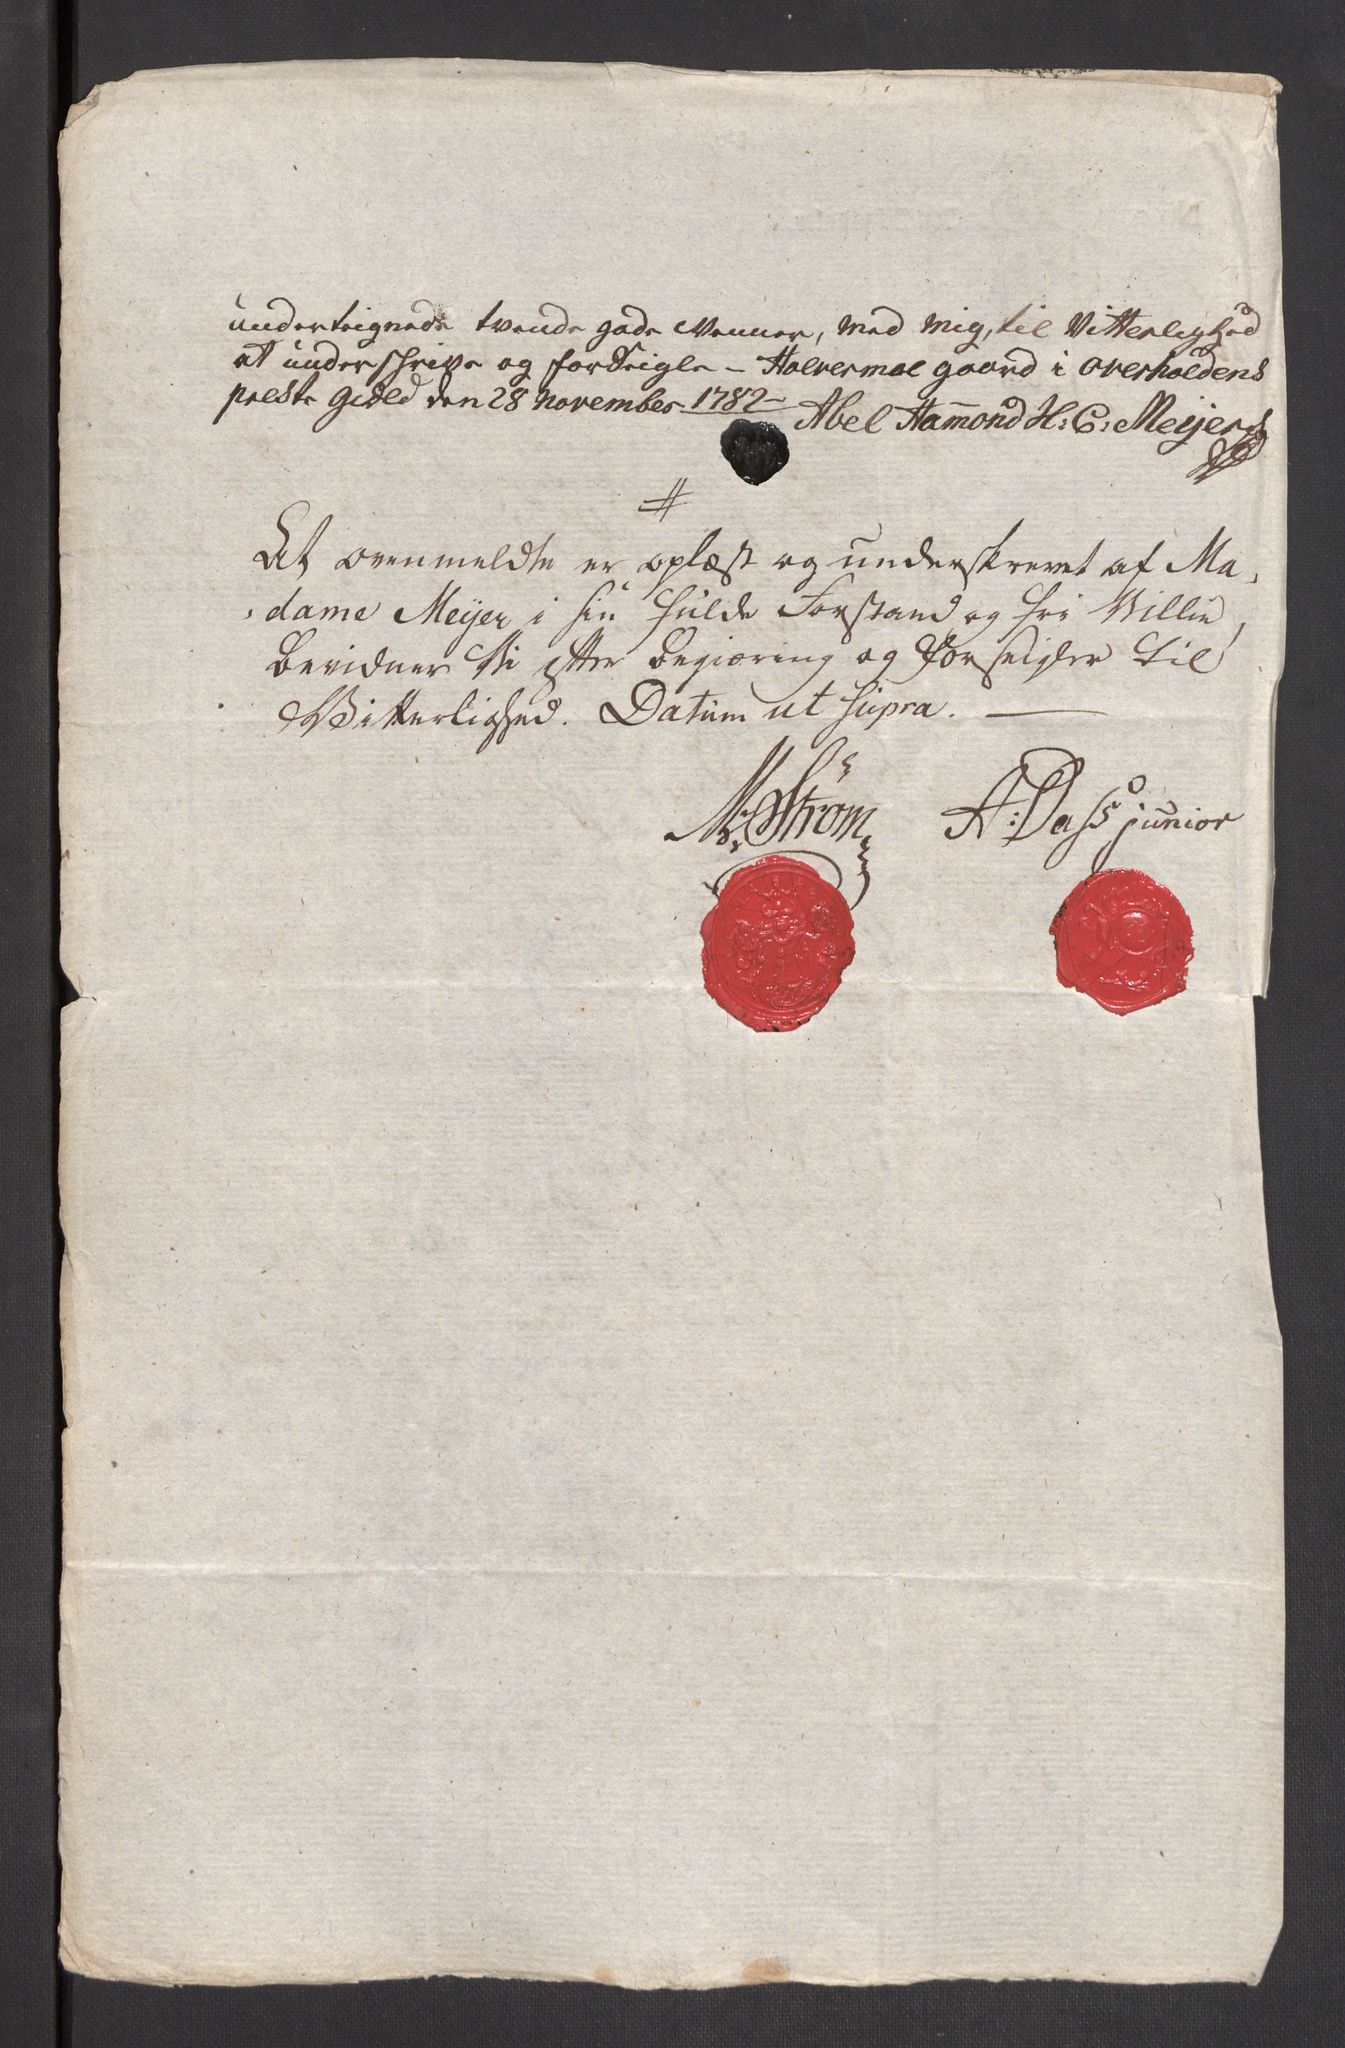 underteignede tvende gode venner, med mig, til Vitterlighed
at underschrive og forseigle - Halversmoe gaard i overhaldens
præste gield den 28 november 1782 -
Abel Hamond H: C: Meijers
#
At ovenmeldte er oplæst og underskrevet af Ma,
dame Meijer i sin fulde Forstand og frie Villie,
bevidner Vi efter begiæring og Forseigler til
Vitterlighed. Datum ut supra. —
M. Strøm
A: Dass junior